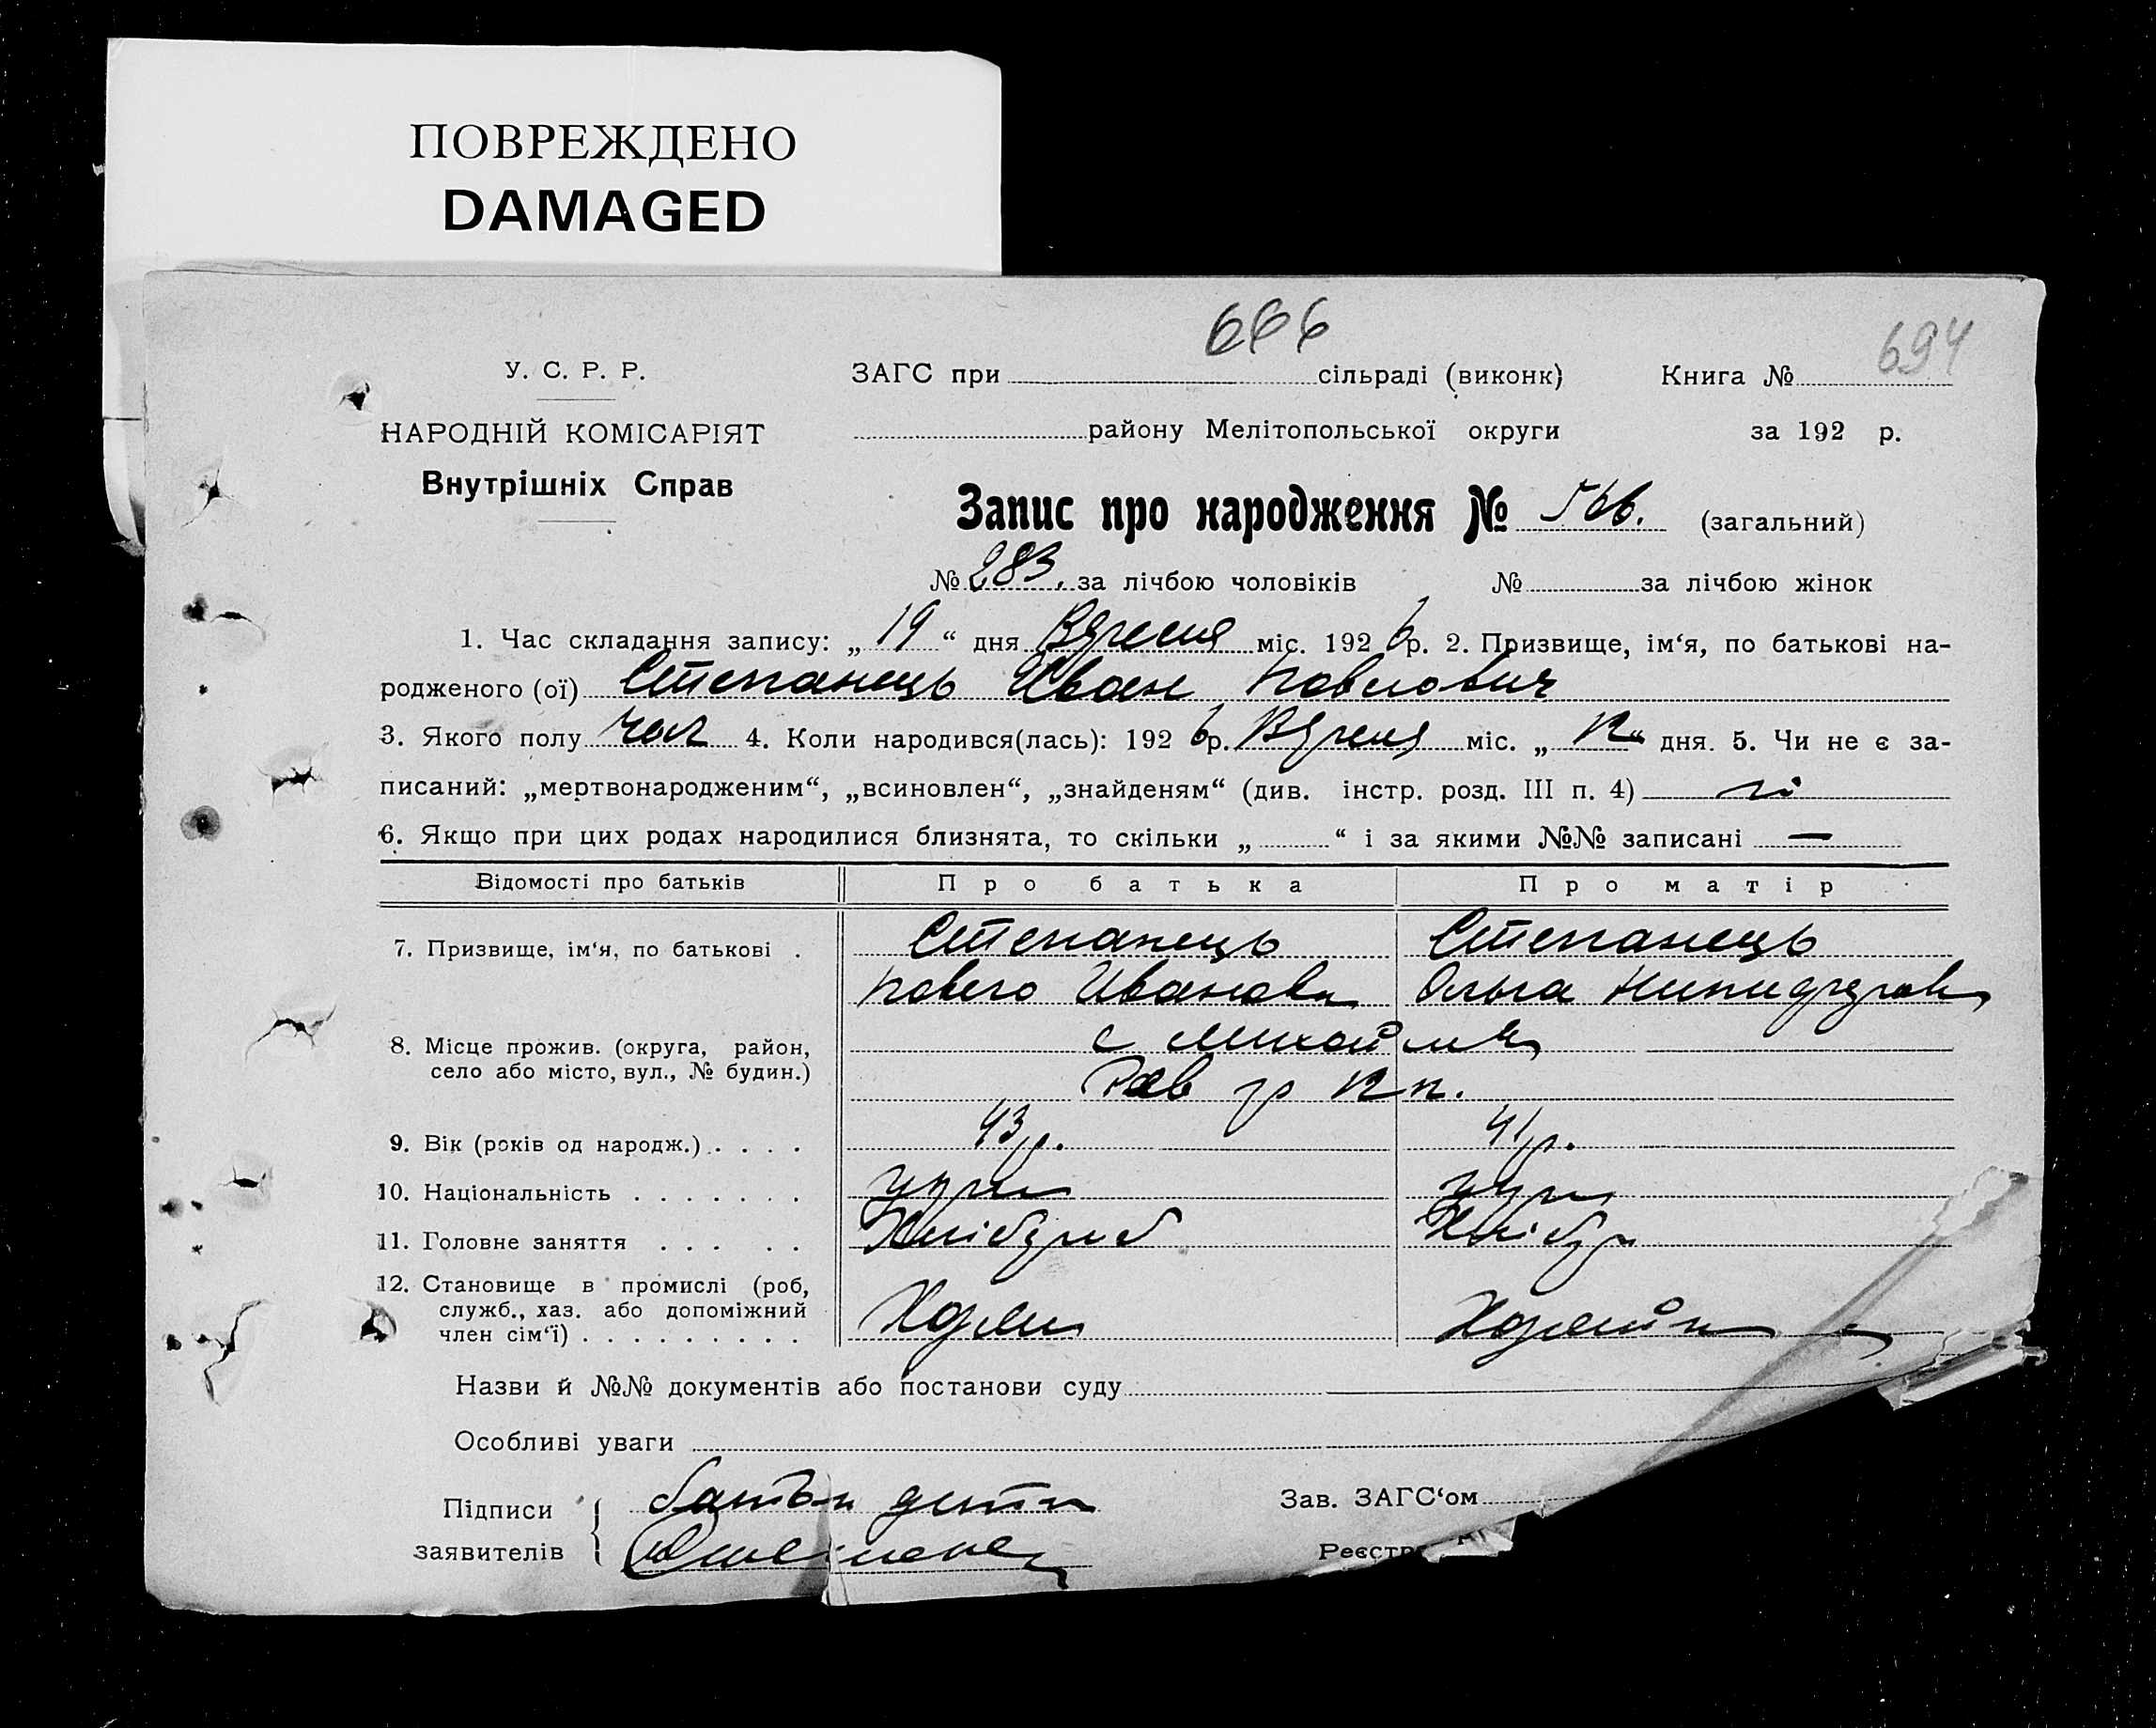 ПОВРЕЖДЕНО
DAMAGED
666
694
У. С. Р. Р.
ЗАГС при сільраді (виконк) Книга №
НАРОДНІЙ КОМІСАРІЯТ
району Мелітопольської округи за 192 р.
Внутрішніх Справ
Запис про народження № 566. (загальний)
№ 283. за лічбою чоловіків № за лічбою жінок
1. Час складання запису: „ 19 “ дня Вересня міс. 192 6 р. 2. Призвище, ім‘я, по батькові на-
родженого (ої) Степанець Иван Павлович
3. Якого полу чол 4. Коли народився(лась): 192 6 р. Вересня міс. „ 12 “ дня. 5. Чи не є за-
писаний: „мертвонародженим“, „всиновлен“, „знайденям“ (див. інстр. розд. III п. 4) ні
6. Якщо при цих родах народилися близнята, то скільки „ “ і за якими №№ записані —
Відомості про батьків Про батька Про матір
7. Призвище, ім‘я, по батькові . Степанець Степанець
Павло Иванови Ольга
8. Місце прожив. (округа, район,
село або місто, вул., № будин.)
9. Вік (років од народж.) . . . . 43 р. 41 р.
10. Національність . . . . . . . укр укр
11. Головне заняття . . . . . Хлібороб Хлібор
12. Становище в промислі (роб,
служб., хаз. або допоміжний
член сім‘ї) . . . . . . . . . Хазяин Хазяйн
Назви й №№ документів або постанови суду
Особливі уваги
Підписи батьки Зав. ЗАГС‘ом
заявителів Реєстр